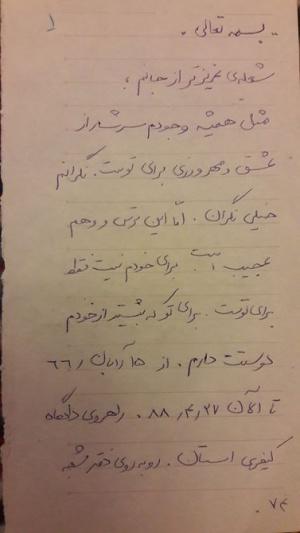 ۱
بسمه تعالی.
شعله‌ی عزیزتر از جانم،
مثل همیشه وجودم سرشار از
عشق و مهرورزی برای توست. نگرانم
خیلی نگران. امّا این ترس و وهم
عجیب است. برای خودم نیست فقط
برای توست. برای تو که بیشتر از خودم
دوستت دارم. از ۱۵ آبان ۶۶
تا الآن ۸۸/۴/۲۷. راهروی دادگاه
کیفری استان. روبه‌روی دفتر شعبه
۷۴.